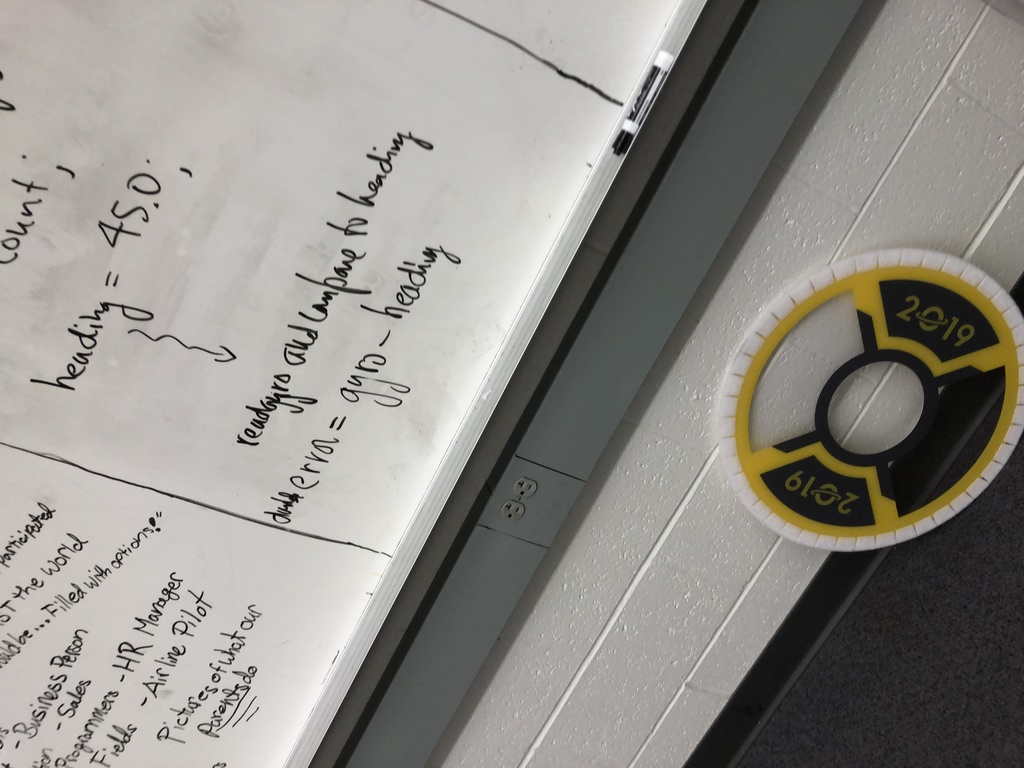 participated
IST the world
ould be... Filled with options!"
- Business Person
- Sales
Programmers - HR Manager
Fields - Airline Pilot
Pictures of what our
Parents do
count;
heading = 45.0;
readgyro and compare to heading
double error = gyro - heading
2019
2019